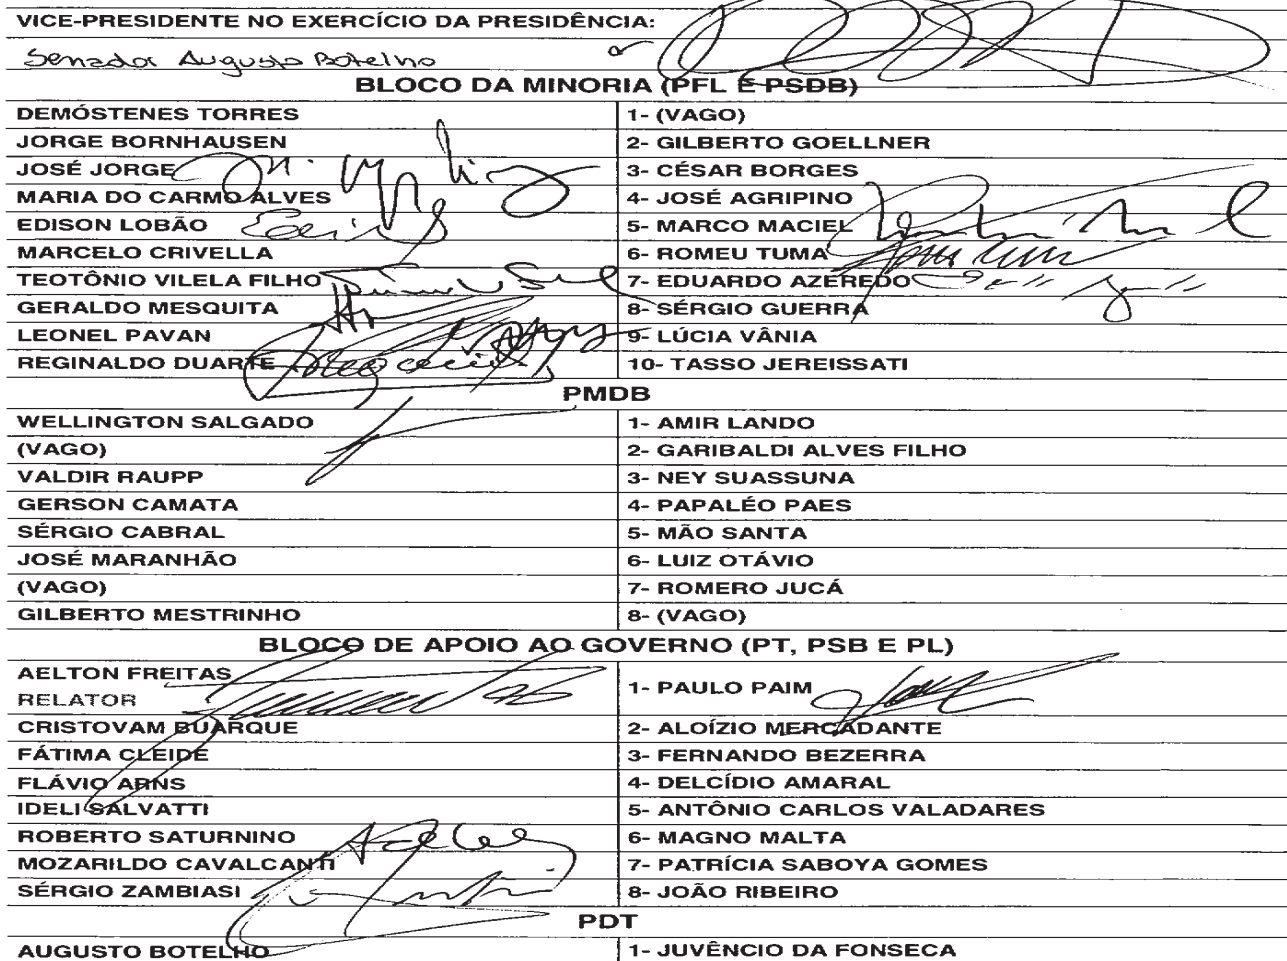 VICE-PRESIDENTE NO EXERCÍCIO DA PRESIDÊNCIA:
Senador Augusto Botelho
BLOCO DA MINORIA (PFL E PSDB)
DEMÓSTENES TORRES 1- (VAGO)
JORGE BORNHAUSEN 2- GILBERTO GOELLNER
JOSÉ JORGE 3- CÉSAR BORGES
MARIA DO CARMO ALVES 4- JOSÉ AGRIPINO
EDISON LOBÃO 5- MARCO MACIEL
MARCELO CRIVELLA 6- ROMEU TUMA
TEOTÔNIO VILELA FILHO 7- EDUARDO AZEREDO
GERALDO MESQUITA 8- SÉRGIO GUERRA
LEONEL PAVAN 9- LÚCIA VÂNIA
REGINALDO DUARTE 10- TASSO JEREISSATI
PMDB
WELLINGTON SALGADO 1- AMIR LANDO
(VAGO) 2- GARIBALDI ALVES FILHO
VALDIR RAUPP 3- NEY SUASSUNA
GERSON CAMATA 4- PAPALÉO PAES
SÉRGIO CABRAL 5- MÃO SANTA
JOSÉ MARANHÃO 6- LUIZ OTÁVIO
(VAGO) 7- ROMERO JUCÁ
GILBERTO MESTRINHO 8- (VAGO)
BLOCO DE APOIO AO GOVERNO (PT, PSB E PL)
AELTON FREITAS
RELATOR 1- PAULO PAIM
CRISTOVAM BUARQUE 2- ALOÍZIO MERCADANTE
FÁTIMA CLEIDE 3- FERNANDO BEZERRA
FLÁVIO ARNS 4- DELCÍDIO AMARAL
IDELI SALVATTI 5- ANTÔNIO CARLOS VALADARES
ROBERTO SATURNINO 6- MAGNO MALTA
MOZARILDO CAVALCANTI 7- PATRÍCIA SABOYA GOMES
SÉRGIO ZAMBIASI 8- JOÃO RIBEIRO
PDT
AUGUSTO BOTELHO 1- JUVÊNCIO DA FONSECA